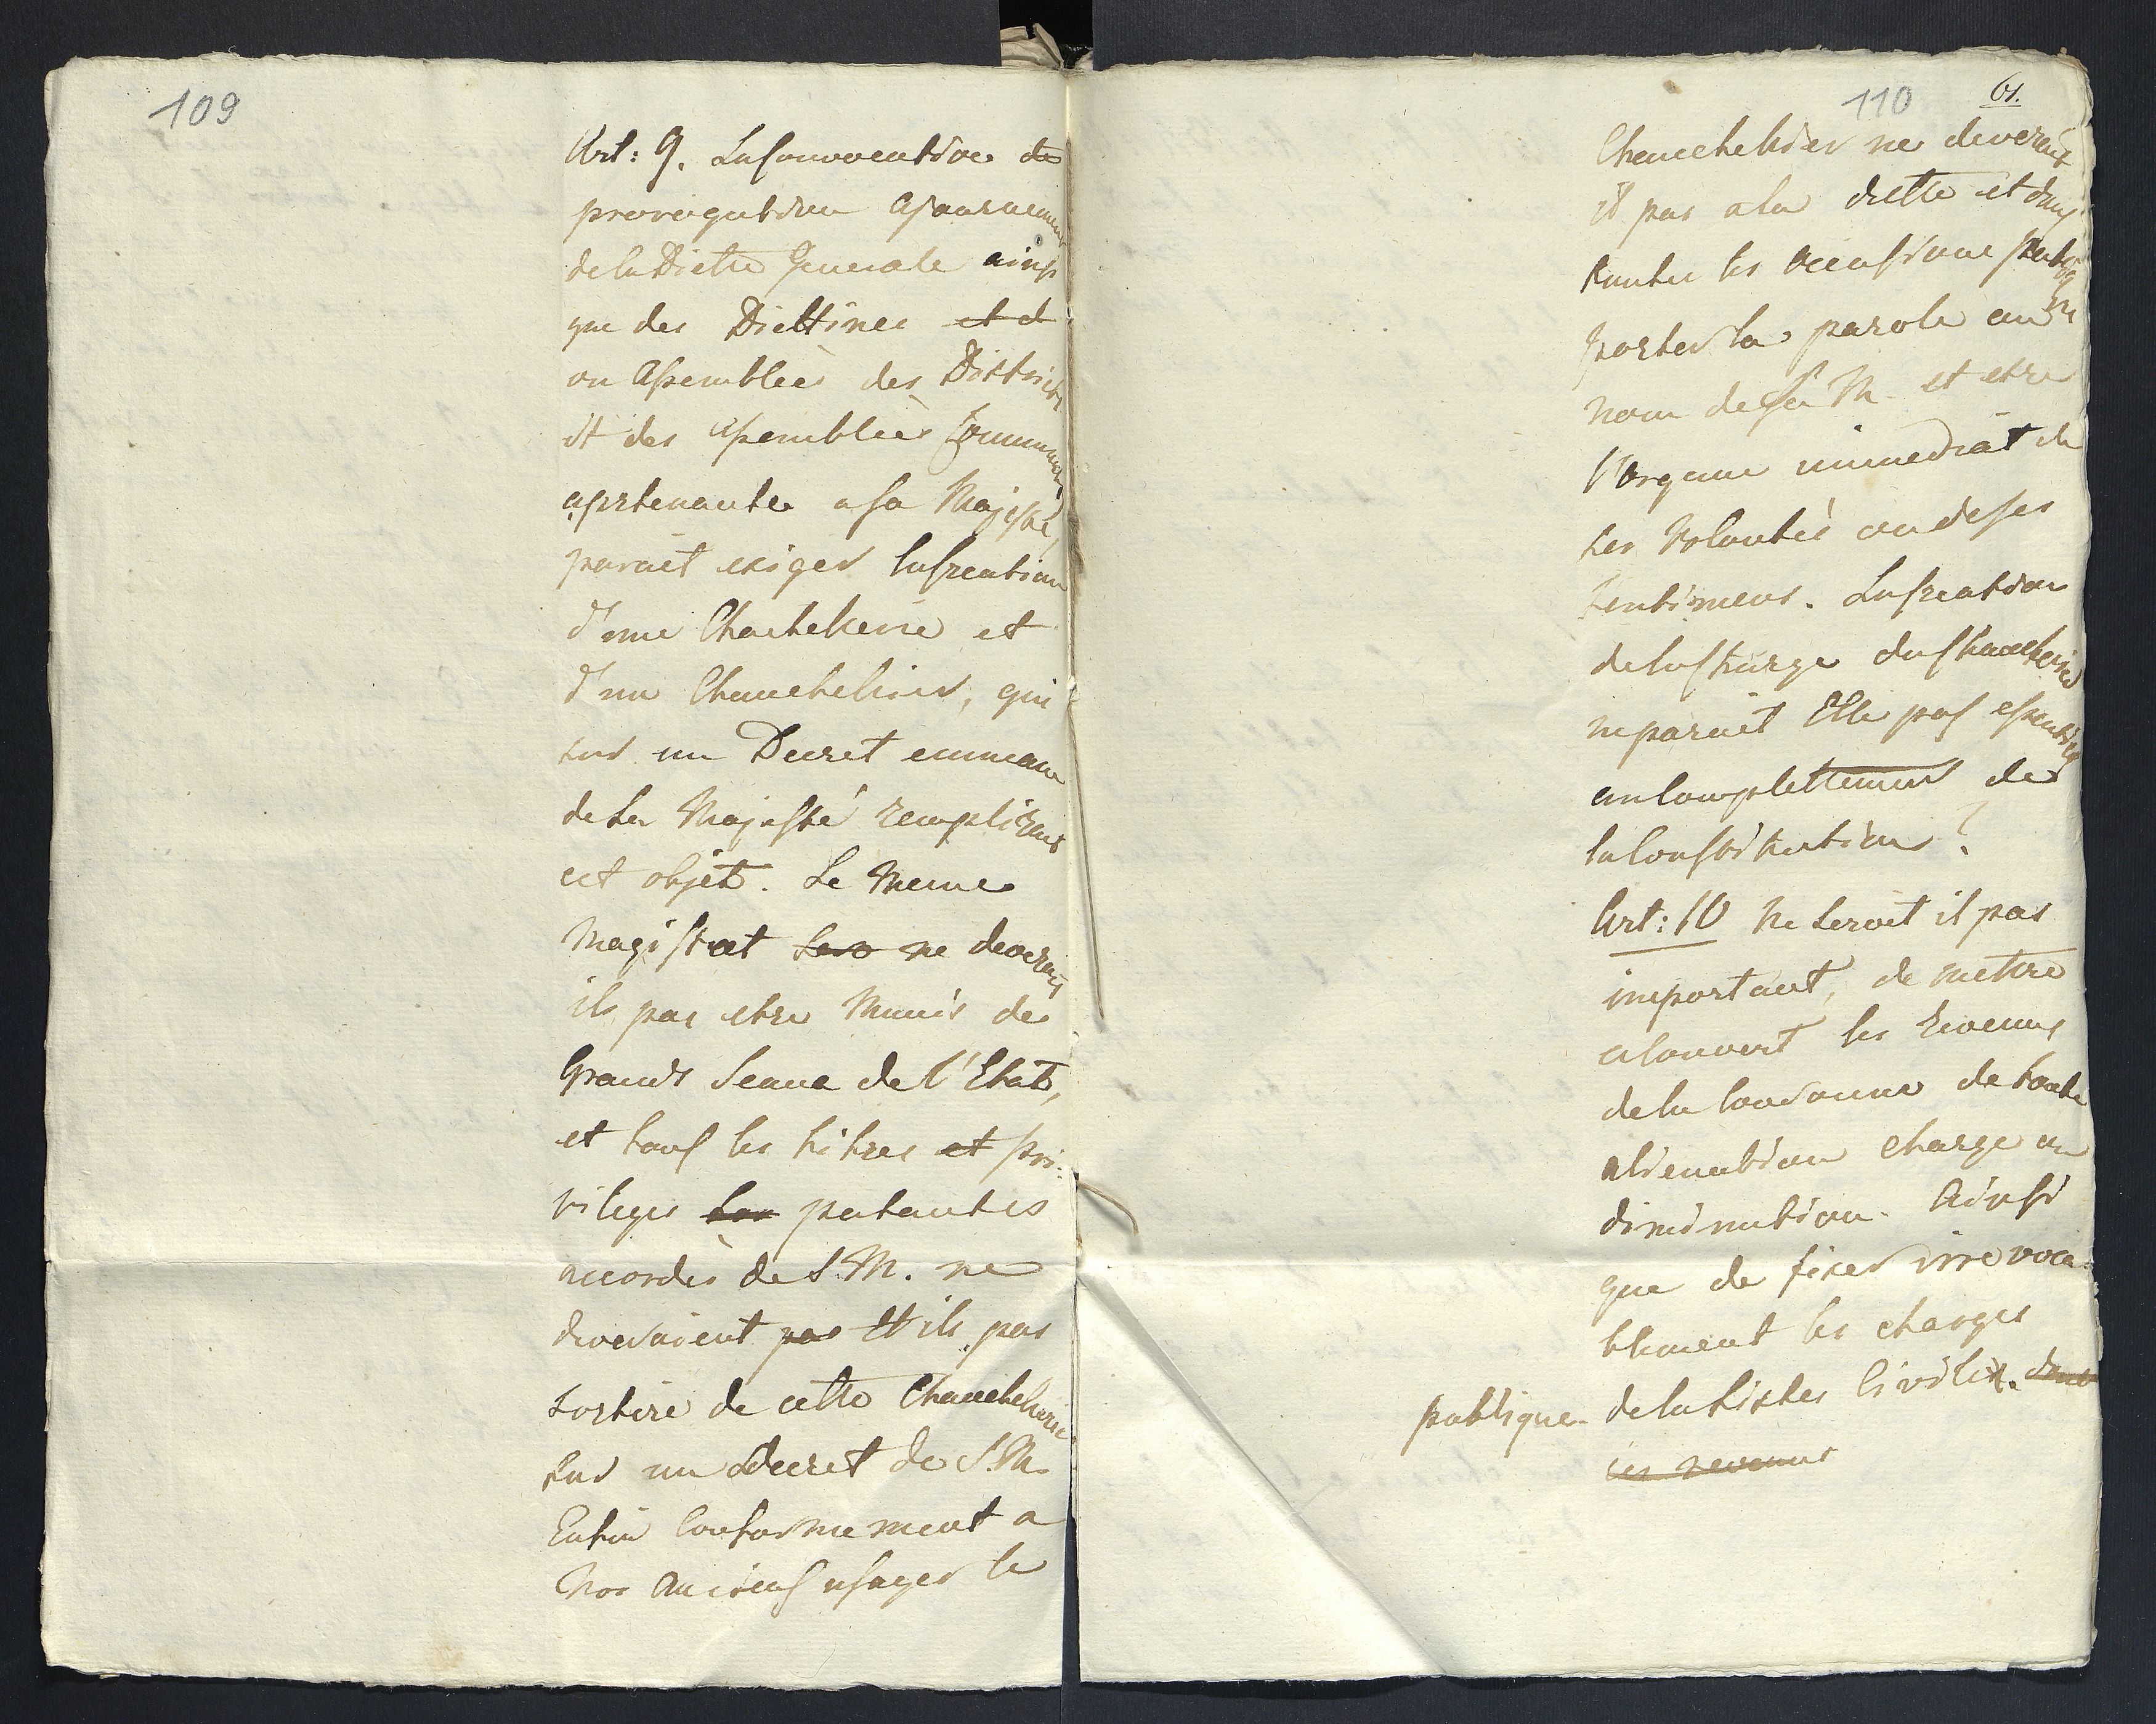 109
Art: 9. La Convocation de
prorogation Ajournement
de la Diette Generale ainsi
que des Diettines et d
ou Assemblées des Districts
et des assemblées Communa
apartenante a sa Majesté,
parait exiger la Creation
d'une Chachelerie et
d'un Chanchelier, qui
sur un Decret emmane
de Sa Majesté remplirait
cet objet. Le meme
Magistrat ser ne devrait
ils pas etre Munis de
Grands Seaux de l'Etat,
et tous les titres et pri-
vileges ton patantes
accordés de S. M. ne
devraient pas tt ils pas
sortire de cette Chanchelerie
sur un Decret de S. M.
Enfin Conformement a
Nos Anciens usages le
110 61.
Chanchelier ne deverait
il pas a la diette et dans
toutes les occasions publiques
porter la parole au
nom de Sa M. et etre
l'Organe immediat de
ses Volontés ou de ses
sentimens. La Creation
de la Charge du Chanchelier
ne parait Elle pas essentielle
au Complettement de
la Constitution?
Art: 10 Ne seroit il pas
important, de mettre
a Couvert les revenus
de la Couronne de toute
alienation charge ou
diminution. Ainsi
que de fixer irrevoca-
blement les charges
publique de la Listes Civile. dont
ces revenus